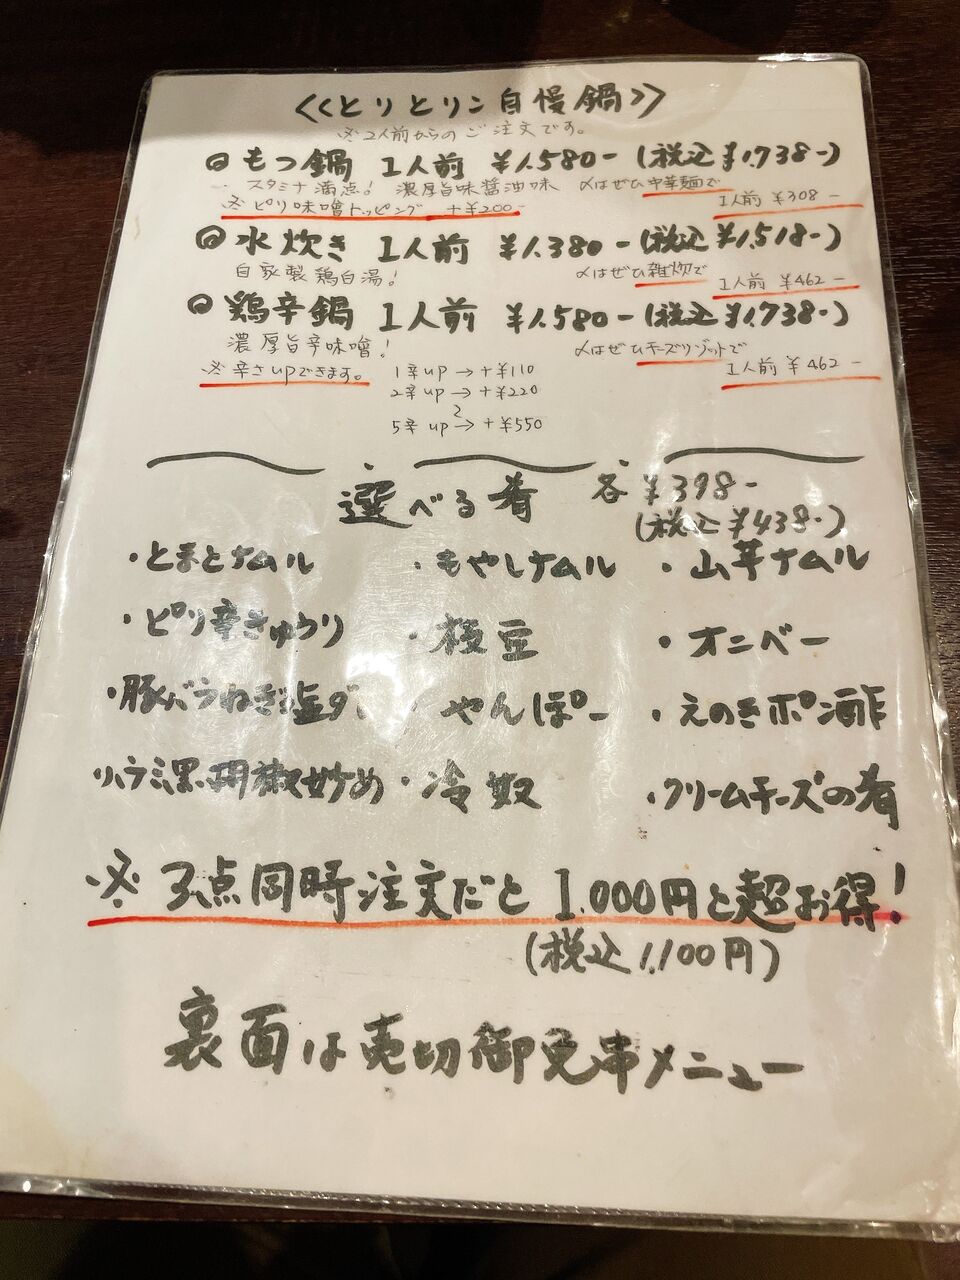 <<とりとリン自慢鍋>>
※2人前からのご注文です。
◎もつ鍋 1人前 ¥1.580- (税込¥1.738-)
スタミナ満点! 濃厚旨味醤油味 〆はぜひ中華麺で
※ピリ味噌トッピング +¥200- 1人前 ¥308-
◎水炊き 1人前 ¥1.380- (税込¥1.518-)
自家製鶏白湯! 〆はぜひ雑炊で
1人前 ¥462-
◎鶏辛鍋 1人前 ¥1.580- (税込¥1.738-)
濃厚旨辛味噌! 〆はぜひチーズリゾットで
※辛さupできます。 1辛up → +¥110 1人前 ¥462-
2辛up → +¥220
〜
5辛up → +¥550
選べる肴 各¥398-
(税込¥438-)
・とまとナムル ・もやしナムル ・山芋ナムル
・ピリ辛きゅうり ・枝豆 ・オニベー
・豚バラねぎ塩ダレ ・やんぽー ・えのきポン酢
ハラミ黒胡椒炒め ・冷奴 ・クリームチーズの肴
※3点同時注文だと 1.000円と超お得!
(税込1.100円)
裏面は売切御免串メニュー